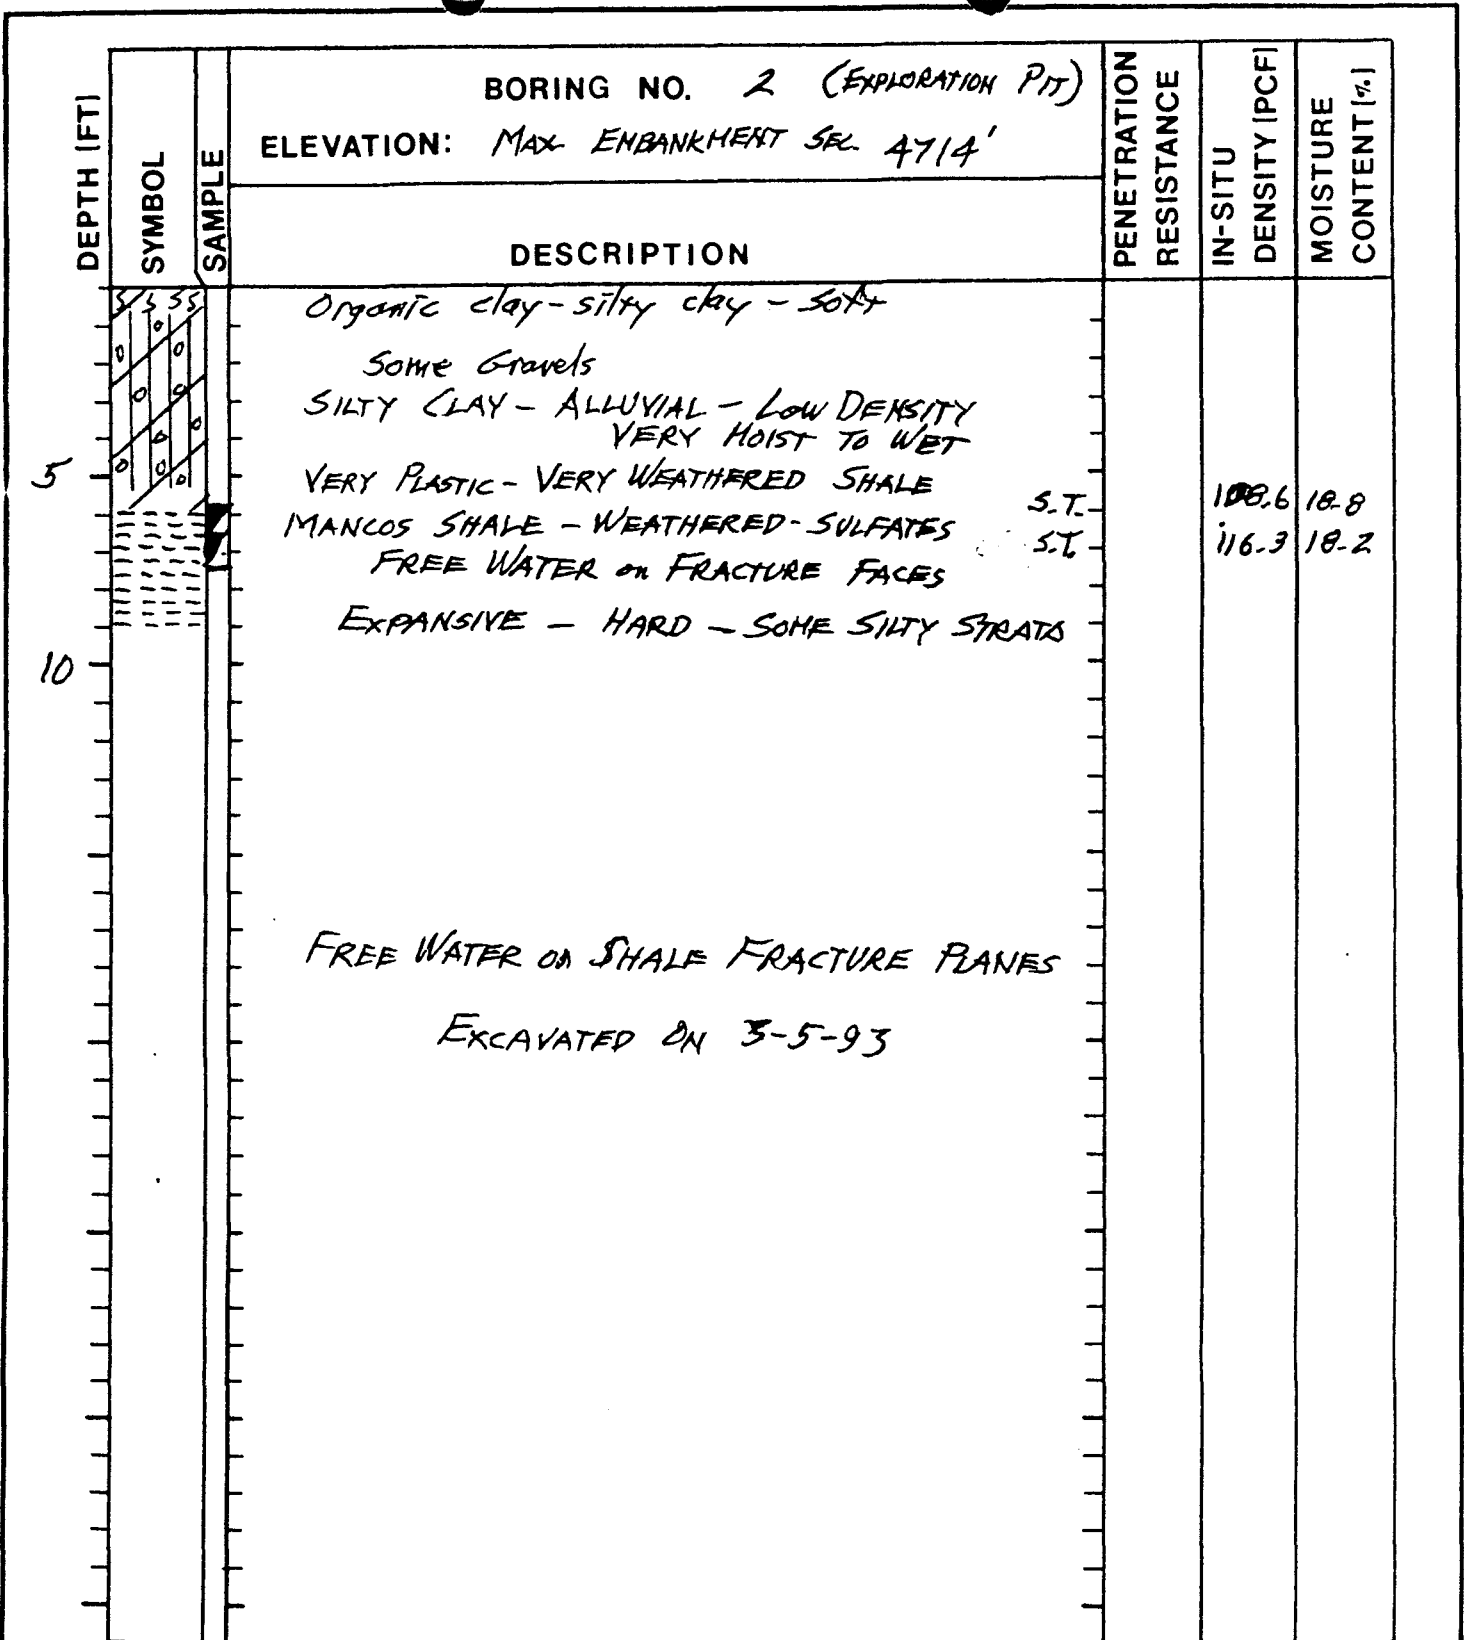 BORING NO. 2 (EXPLORATION PIT)
ELEVATION: MAX EMBANKMENT SEC. 4714'
DEPTH [FT]
SYMBOL
SAMPLE
DESCRIPTION
PENETRATION RESISTANCE
IN-SITU DENSITY [PCF]
MOISTURE CONTENT [%]
Organic clay - silty clay - Soft
Some Gravels
SILTY CLAY - ALLUVIAL - LOW DENSITY
VERY MOIST TO WET
5 VERY PLASTIC - VERY WEATHERED SHALE
S.T. 108.6 18.8
MANCOS SHALE - WEATHERED - SULFATES
S.T. 116.3 18.2
FREE WATER on FRACTURE FACES
EXPANSIVE - HARD - SOME SILTY STRATA
10
FREE WATER on SHALE FRACTURE PLANES
EXCAVATED ON 3-5-93